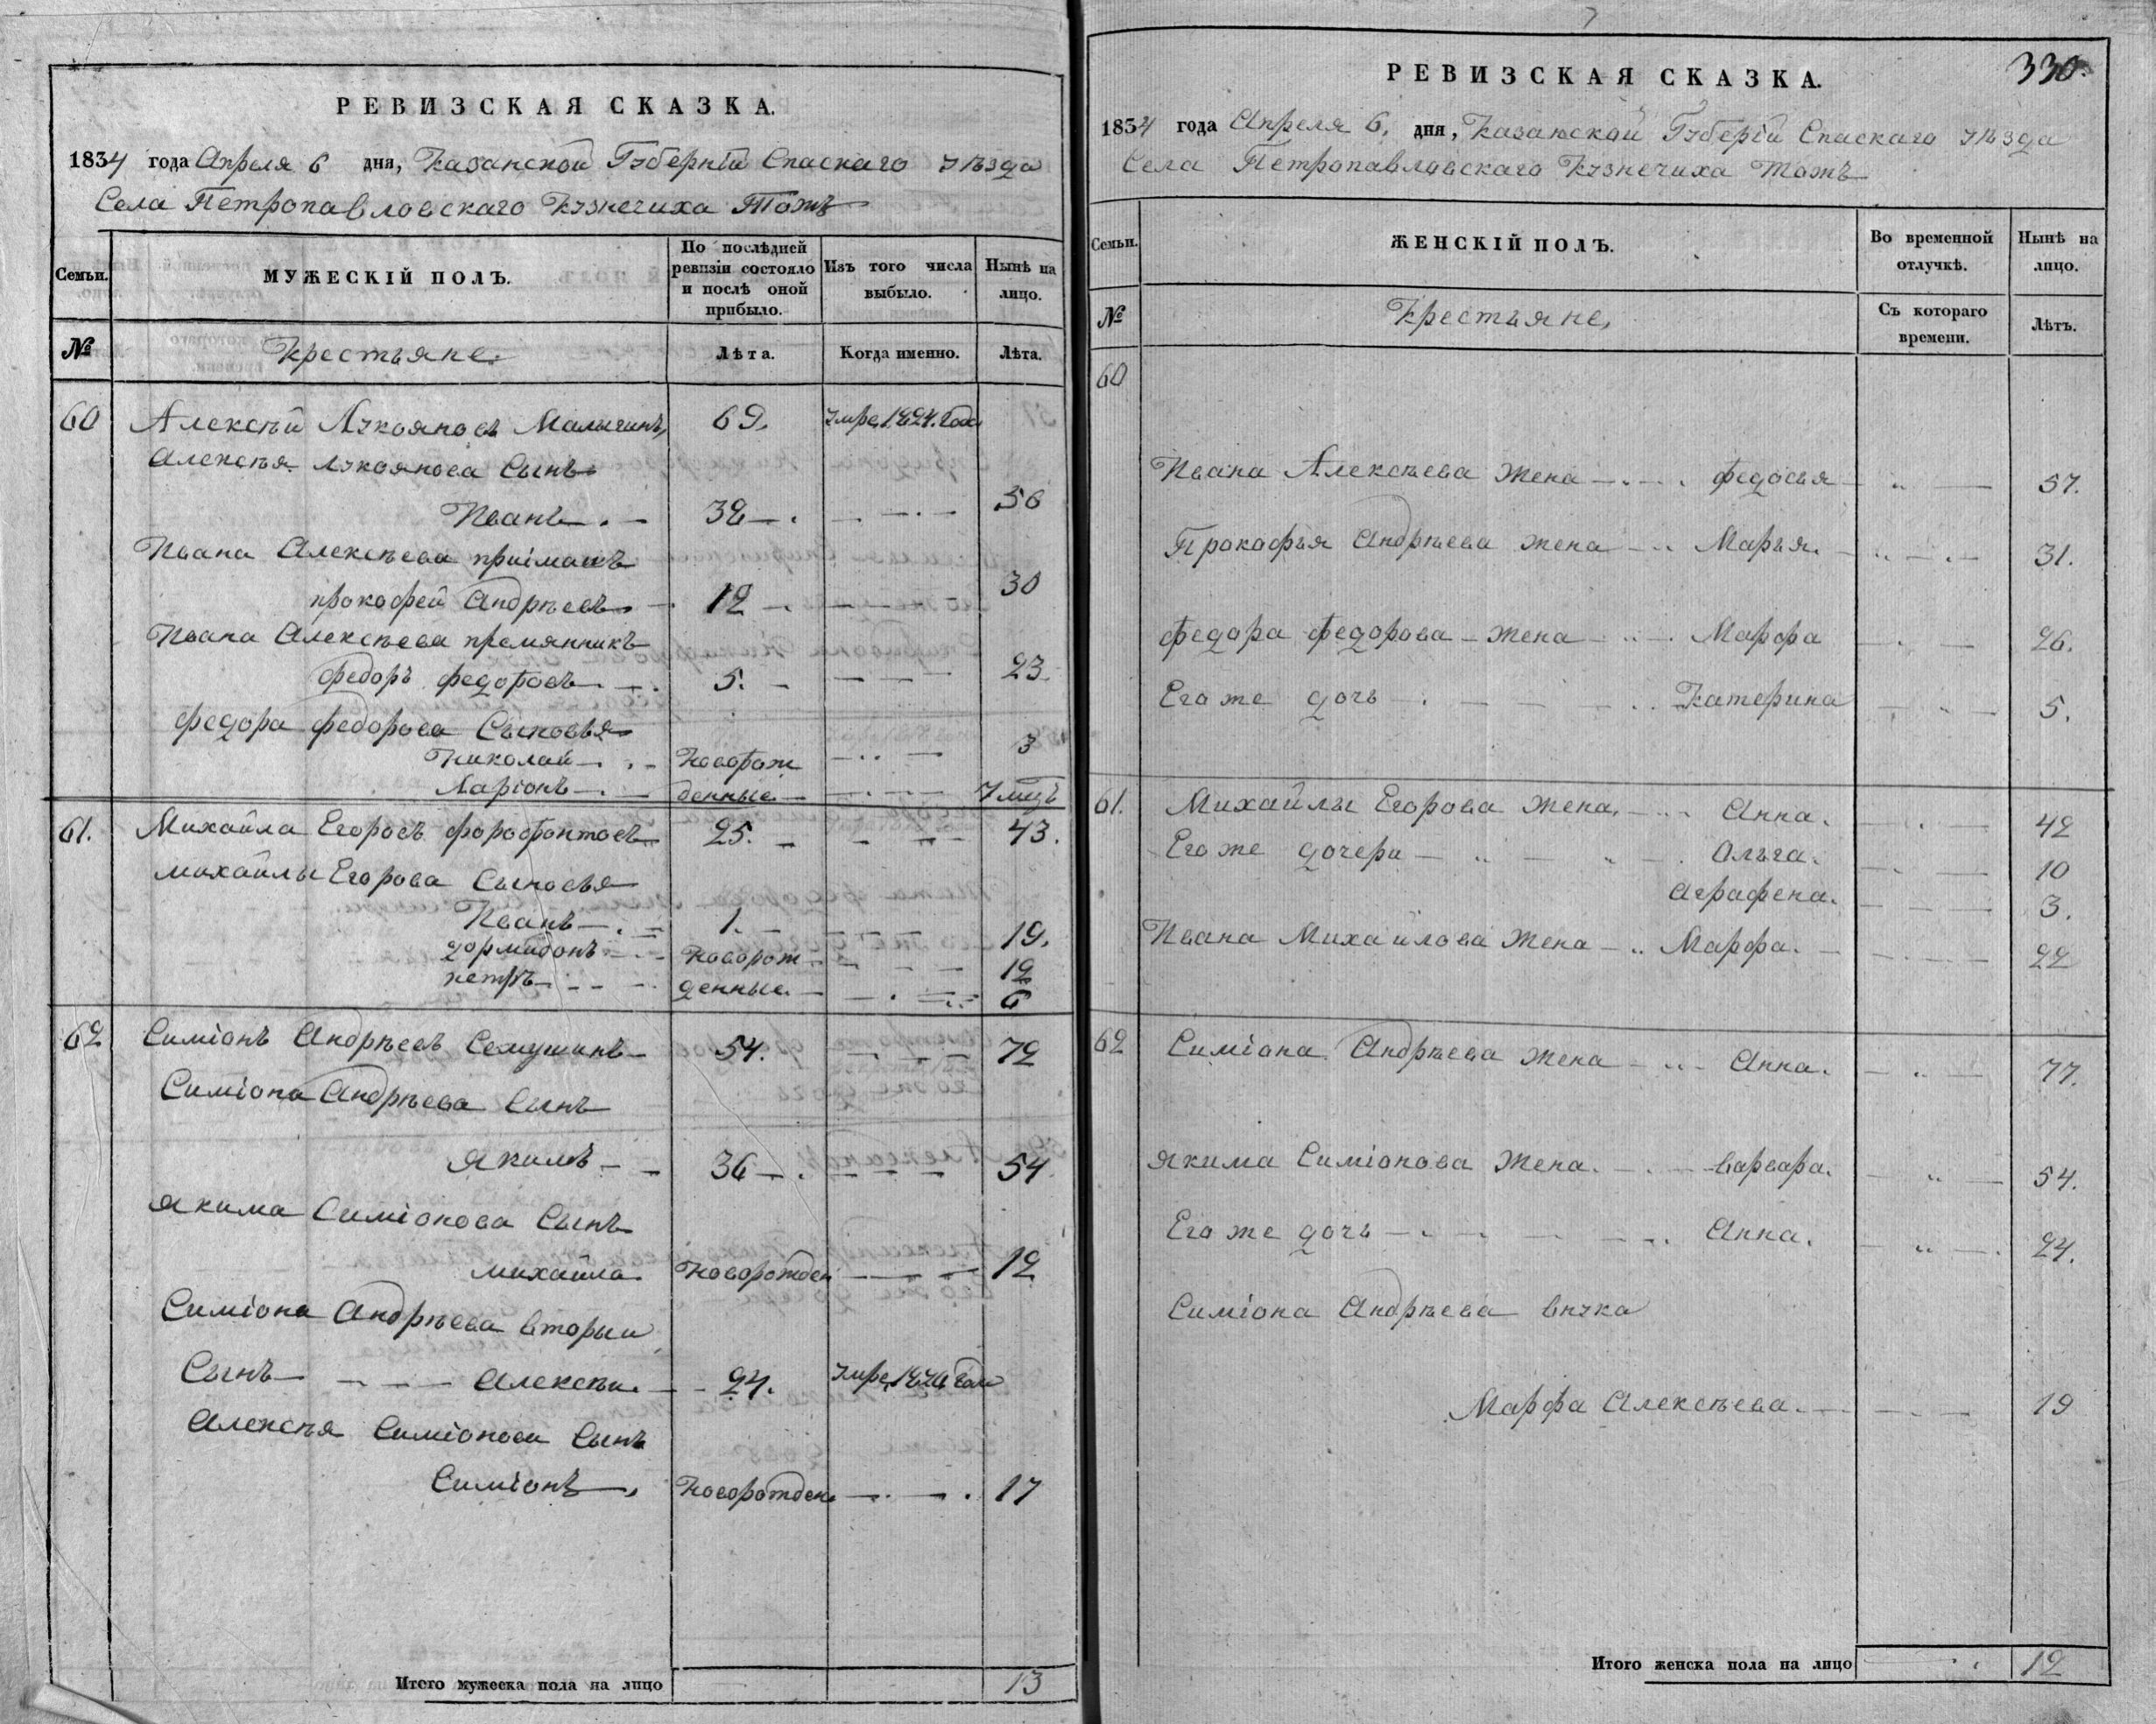 РЕВИЗСКАЯ СКАЗКА.
1834 года Апреля 6 дня, Казанской Губерніи Спаскаго уѣзда
Села Петропавловскаго Кузнечиха Тожъ
Семьи. МУЖЕСКІЙ ПОЛЪ. По послѣдней ревизіи состояло и послѣ оной прибыло. Изъ того числа выбыло. Нынѣ на лицо.
№ Крестьяне. Лѣта. Когда именно. Лѣта.
60 Алексѣй Лукояновъ Малыгинъ 69. умре 1824. года
Алексѣя Лукоянова Сынъ
Иванъ 38 56
Ивана Алексѣева пріимашъ
прокофей Андрѣевъ 12 30
Ивана Алексѣева премянникъ
федоръ федоровъ 5. 23.
федора федорова Сыновья
Николай Новорож 3
Ларіонъ денные 7 мцъ
61. Михайла Егоровъ форофонтовъ 25. 43.
михайлы Егорова Сыновья
Иванъ 1. 19.
дормидонъ Новорож 12
петръ денные. 6
62 Симіонъ Андрѣевъ Семушинъ 54. 72
Симіона Андрѣева Сынъ
Якимъ 36 54
Якима Симіонова Сынъ
михайла. Новорожден 12
Симіона Андрѣева вторыи
Сынъ Алексѣи. 24. умре года
Алексѣя Симіонова Сынъ
Симіонъ Новорожден 17
Итого мужеска пола на лицо 13
7
330.
РЕВИЗСКАЯ СКАЗКА.
1834 года Апреля 6. дня, Казанской Губеріи Спаскаго уѣзда
Села Петропавловскаго Кузнечиха тожъ
Семьи. ЖЕНСКІЙ ПОЛЪ. Во временной отлучкѣ. Нынѣ на лицо.
№ Крестьяне, Съ котораго времени. Лѣтъ.
60
Ивана Алексѣева Жена федосья 57.
Прокофья Андрѣева жена Марья. 31.
федора федорова жена Марфа 26.
Его же дочь Катерина 5.
61. Михайлы Егорова жена, Анна. 42
Его же дочери Ольга. 10
Аграфена. 3.
Ивана Михайлова жена Марфа. 22
62 Симіона Андрѣева жена Анна. 77.
Якима Симіонова Жена. варвара. 54.
Его же дочь Анна. 24.
Симіона Андрѣева внука
Марфа Алексѣева. 19
Итого женска пола на лицо 12